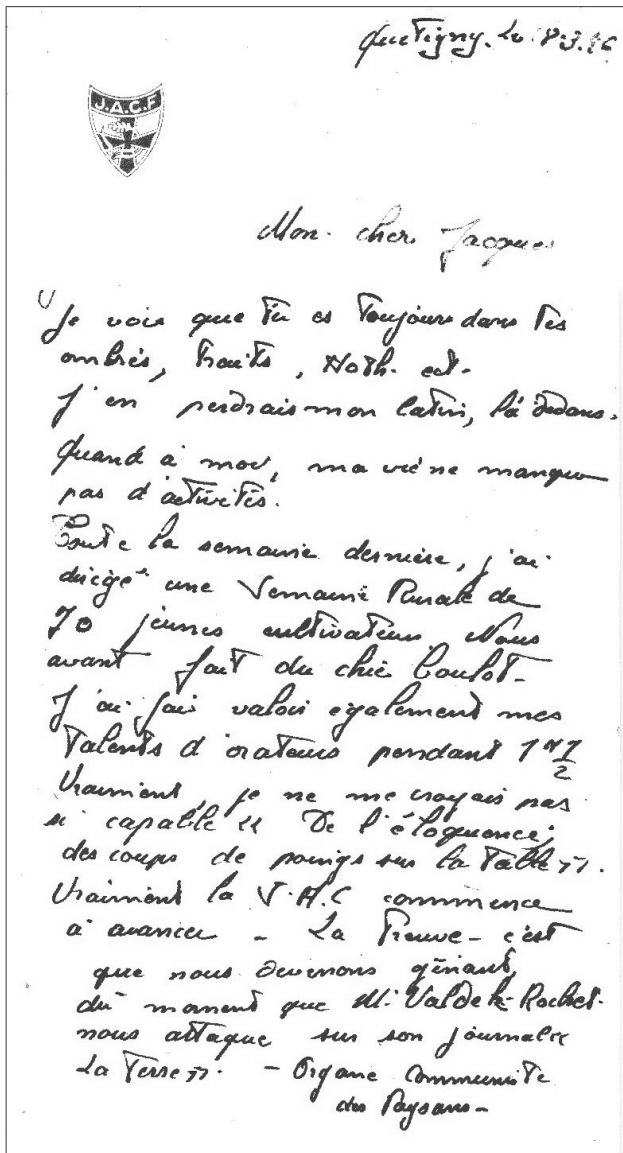 Quetigny. Le 8.3.46
J.A.C.F
Mon cher Jacques
Je vois que tu es toujours dans tes
ombrés, traits, Moth. ect.
J'en perdrais mon latin, là dedans.
Quand à moi, ma vie ne manque
pas d'activités.
Toute la semaine dernière, j'ai
dirigé une Semaine Rurale de
70 jeunes cultivateurs Nous
avont fait du chic boulot-
J'ai fais valoir également mes
talents d'orateurs pendant 1h 1/2
Vraiment, je ne me croyais pas
si capable "De l'éloquence,
des coups de poings sur la table".
Vraiment la J.A.C commence
à avancer - La Preuve - c'est
que nous devenons gênant,
du moment que M. Valdek-Rochet.
nous attaque sur son journal "
La Terre". - Organe communiste
des Paysans-